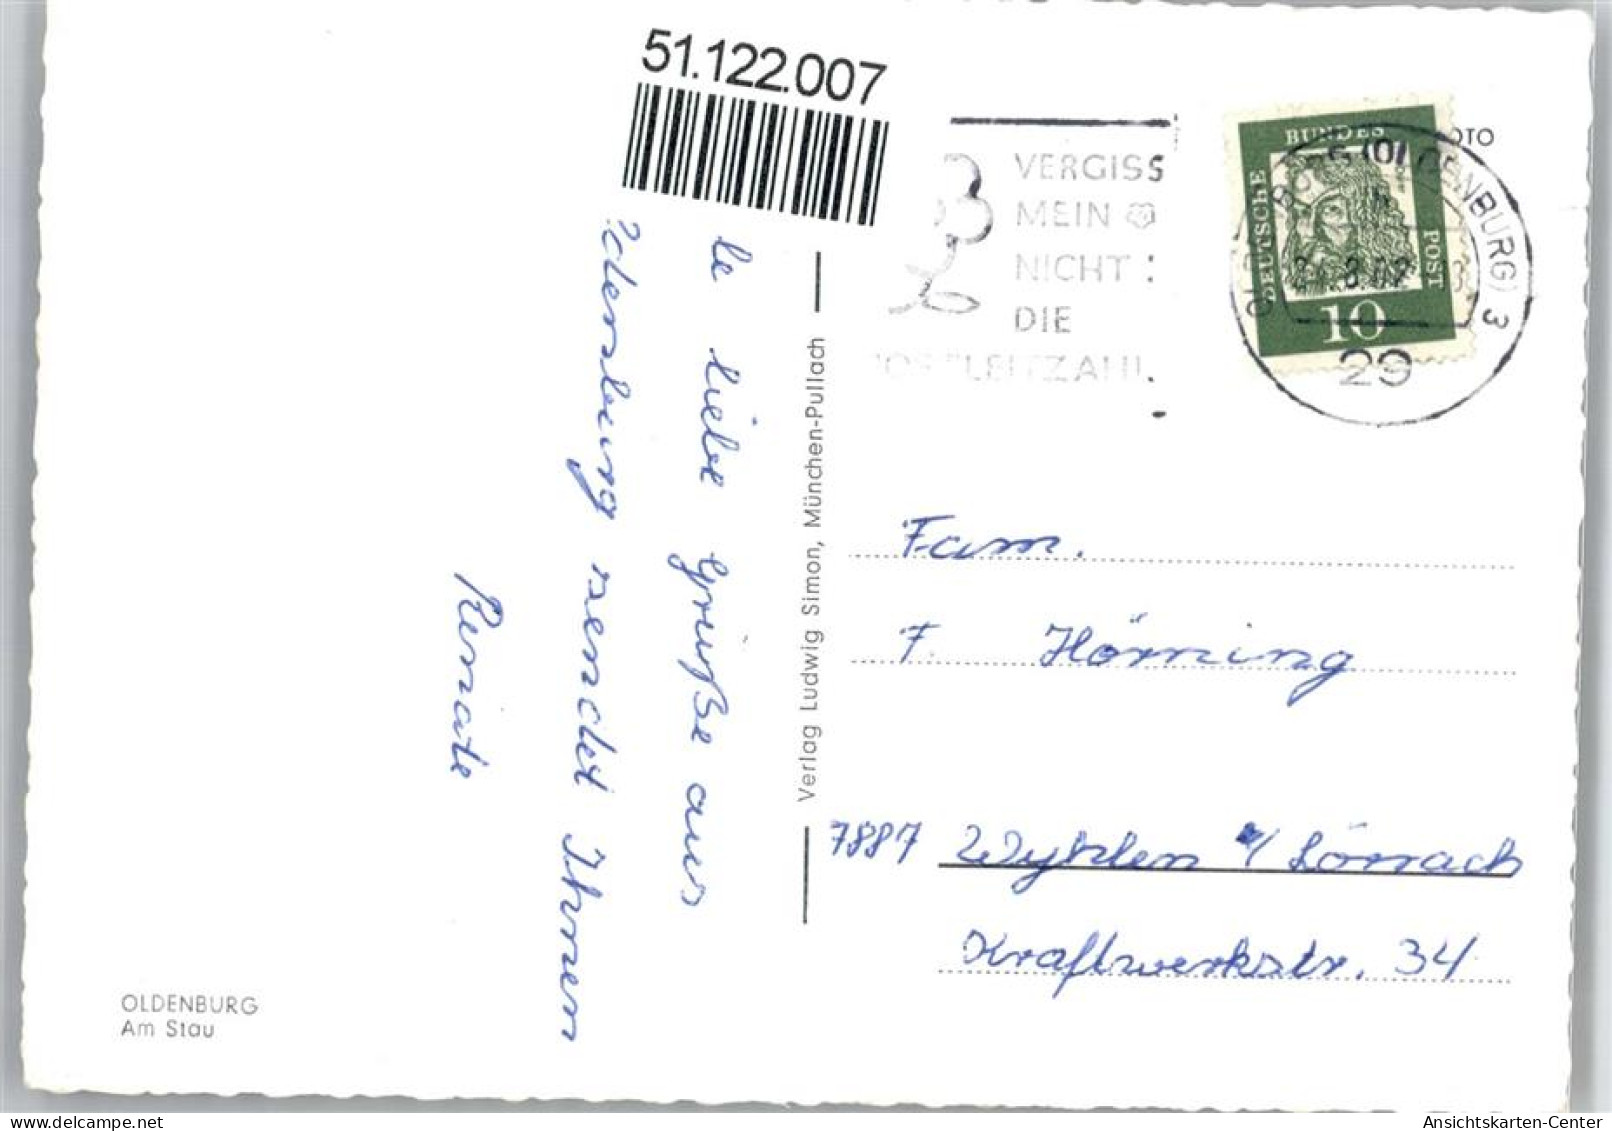 51.122.007
VERGISS
MEIN
NICHT
DIE
DEUTSCHE
BUNDES
POST
10
OTO
(OLDENBURG) 3
29
le liebe Grüße aus
Oldenburg sendet Ihnen
Renate
Verlag Ludwig Simon, München-Pullach
Fam.
F. Hörning
7887 Wyhlen /Lörrach
Kraftwerkstr. 34
OLDENBURG
Am Stau
delcampe.net
Ansichtskarten-Center